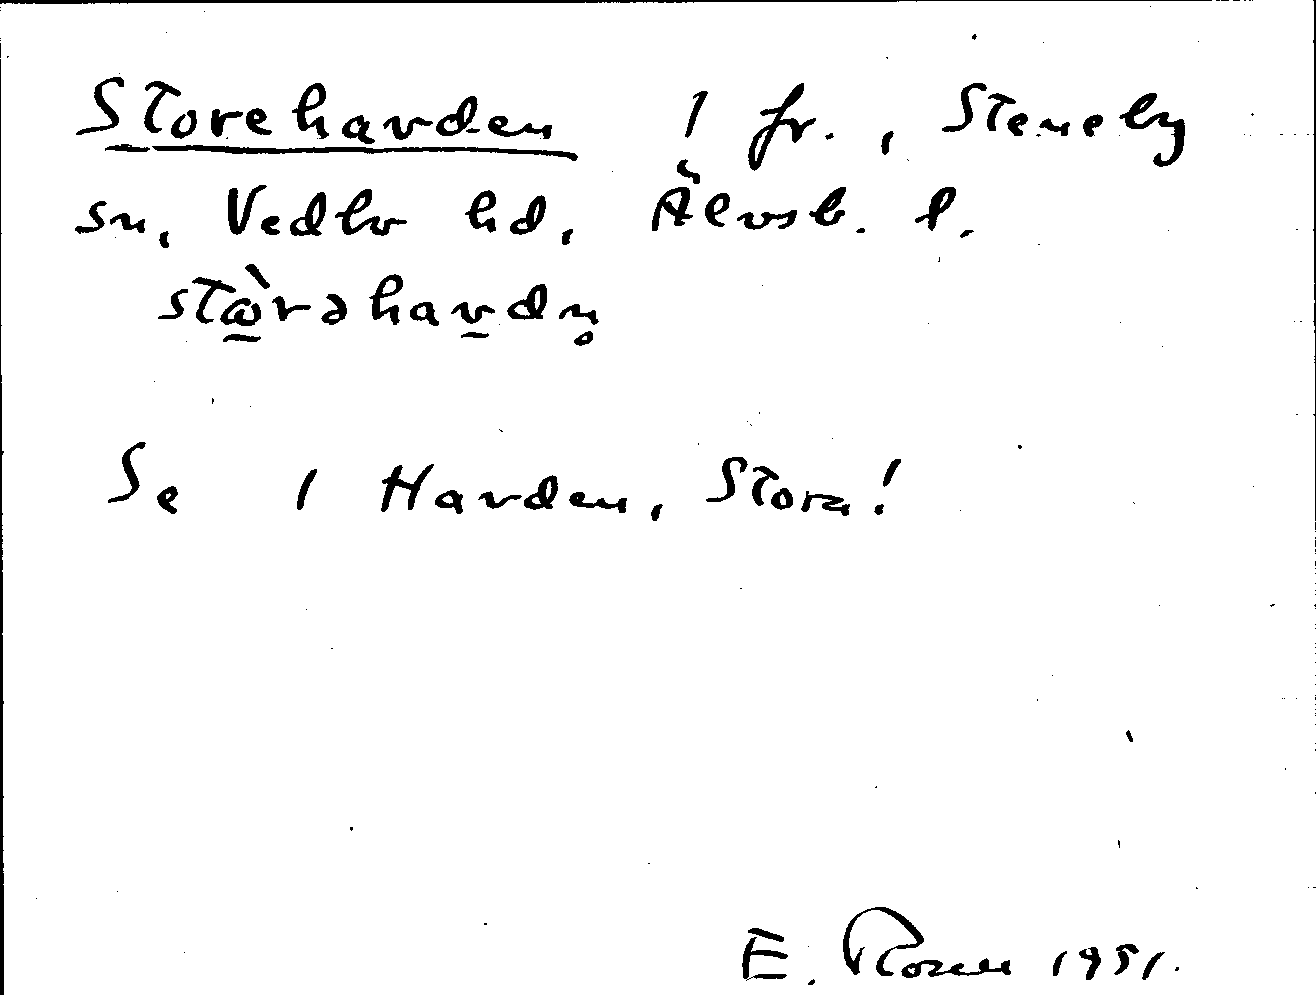 Storehavden 1 fr., Steneby
sn, Vedbo hd, Älvsb. l.
stὼ̲rəhav̲dn̥
Se 1 Havden, Stora!
E. Rosell 1951.